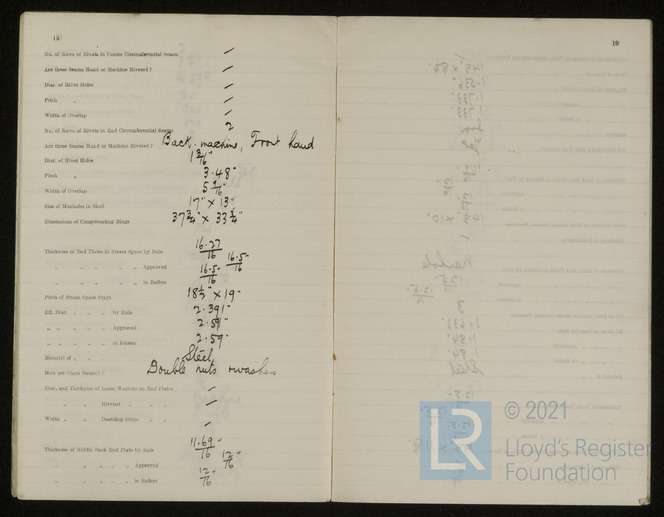 18
No. of Rows of Rivets in Centre Circumferential Seams /
Are these Seams Hand or Machine Riveted? /
Diar. of Rivet Holes /
Pitch „ /
Width of Overlap /
No. of Rows of Rivets in End Circumferential Seams 2
Are these Seams Hand or Machine Riveted? Back machine, Front hand
Diar. of Rivet Holes 1 3/16"
Pitch „ 3.48"
Width of Overlap
Size of Manholes in Shell 17" x 13"
Dimensions of Compensating Rings 37 3/4" x 33 3/4"
Thickness of End Plates in Steam Space by Rule 16.27/16
„ „ „ „ „ Approved 16.5"/16
„ „ „ „ „ in Boilers 16.5"/16
Pitch of Steam Space Stays 18 1/2" x 19"
Eff. Diar. „ „ „ by Rule 2.391"
„ „ „ „ Approved 2.59"
„ „ „ „ in Boilers 2.59"
Material of „ „ Steel
How are Stays Secured? Double nuts & washers
Diar. and Thickness of Loose Washers on End Plates /
„ „ Riveted „ „ „ /
Width „ „ Doubling Strips „ „ /
Thickness of Middle Back End Plate by Rule 11.69"/16
„ „ „ „ „ Approved 12"/16
„ „ „ „ „ in Boilers 12"/16
19
LR
© 2021
Lloyd's Register
Foundation